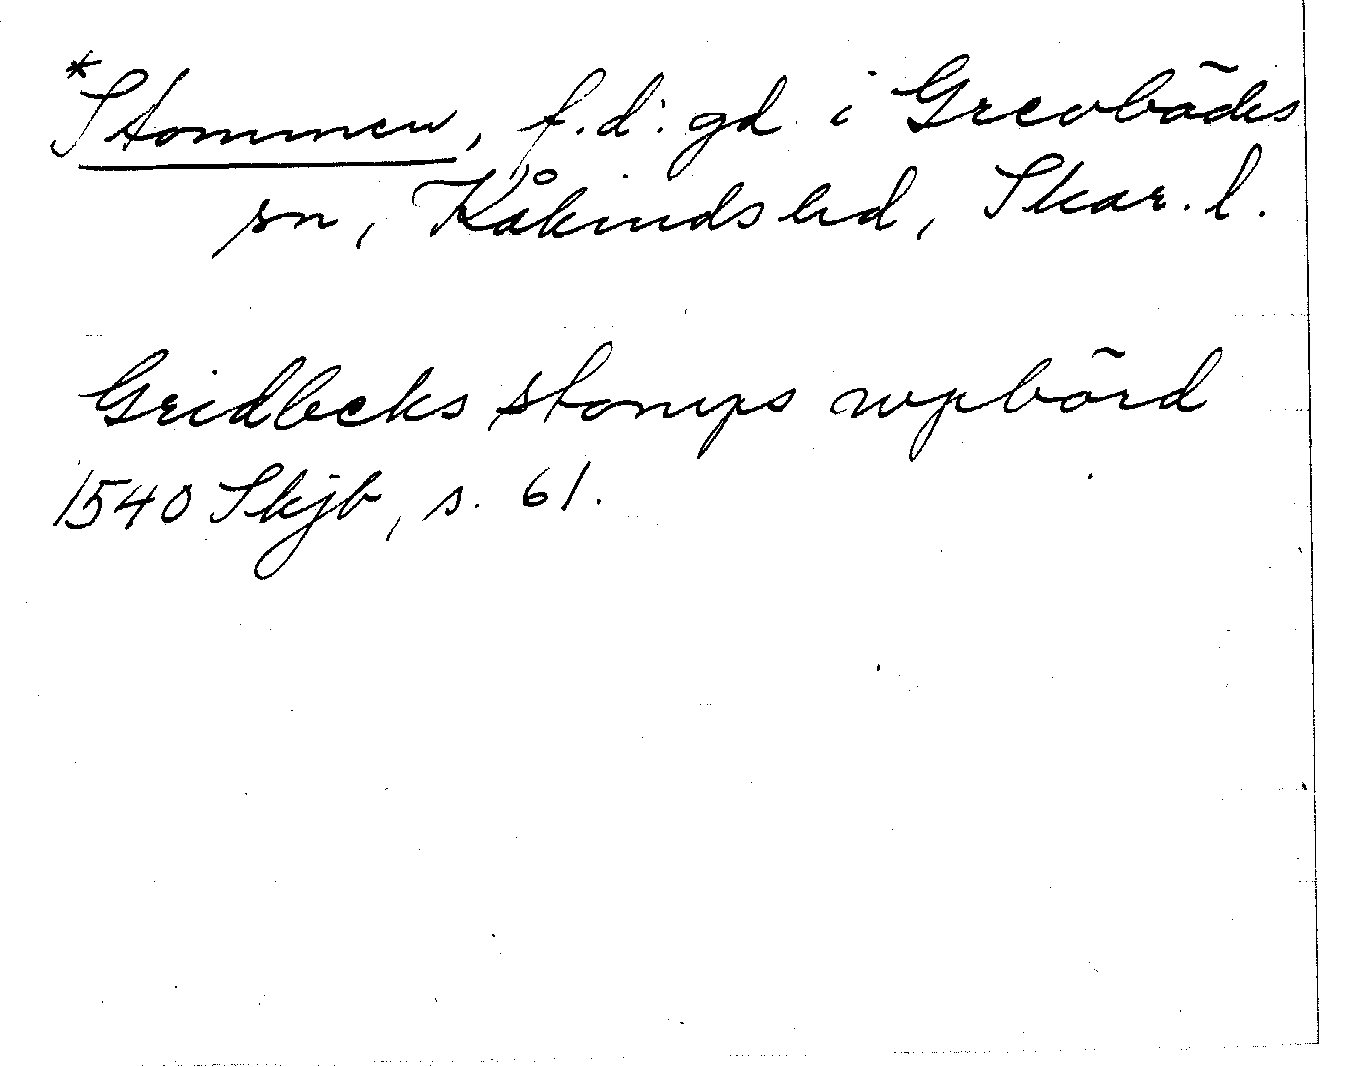 *Stommen, f.d. gd i Grevbäcks
sn, Kåkinds hd, Skar. l.
Gridbecks stomps wpbörd
1540 Skjb, s. 61.